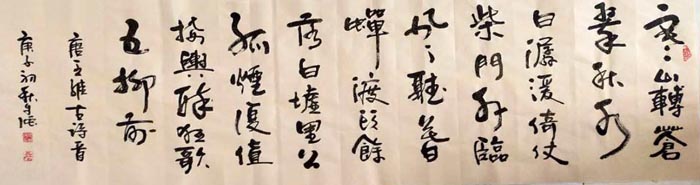 寒山轉蒼
翠秋水
日潺湲倚仗
柴門外臨
風聽暮
蟬渡頭餘
落日墟里上
孤煙復值
接輿醉狂歌
五柳前
唐王維古诗首
庚子初秋